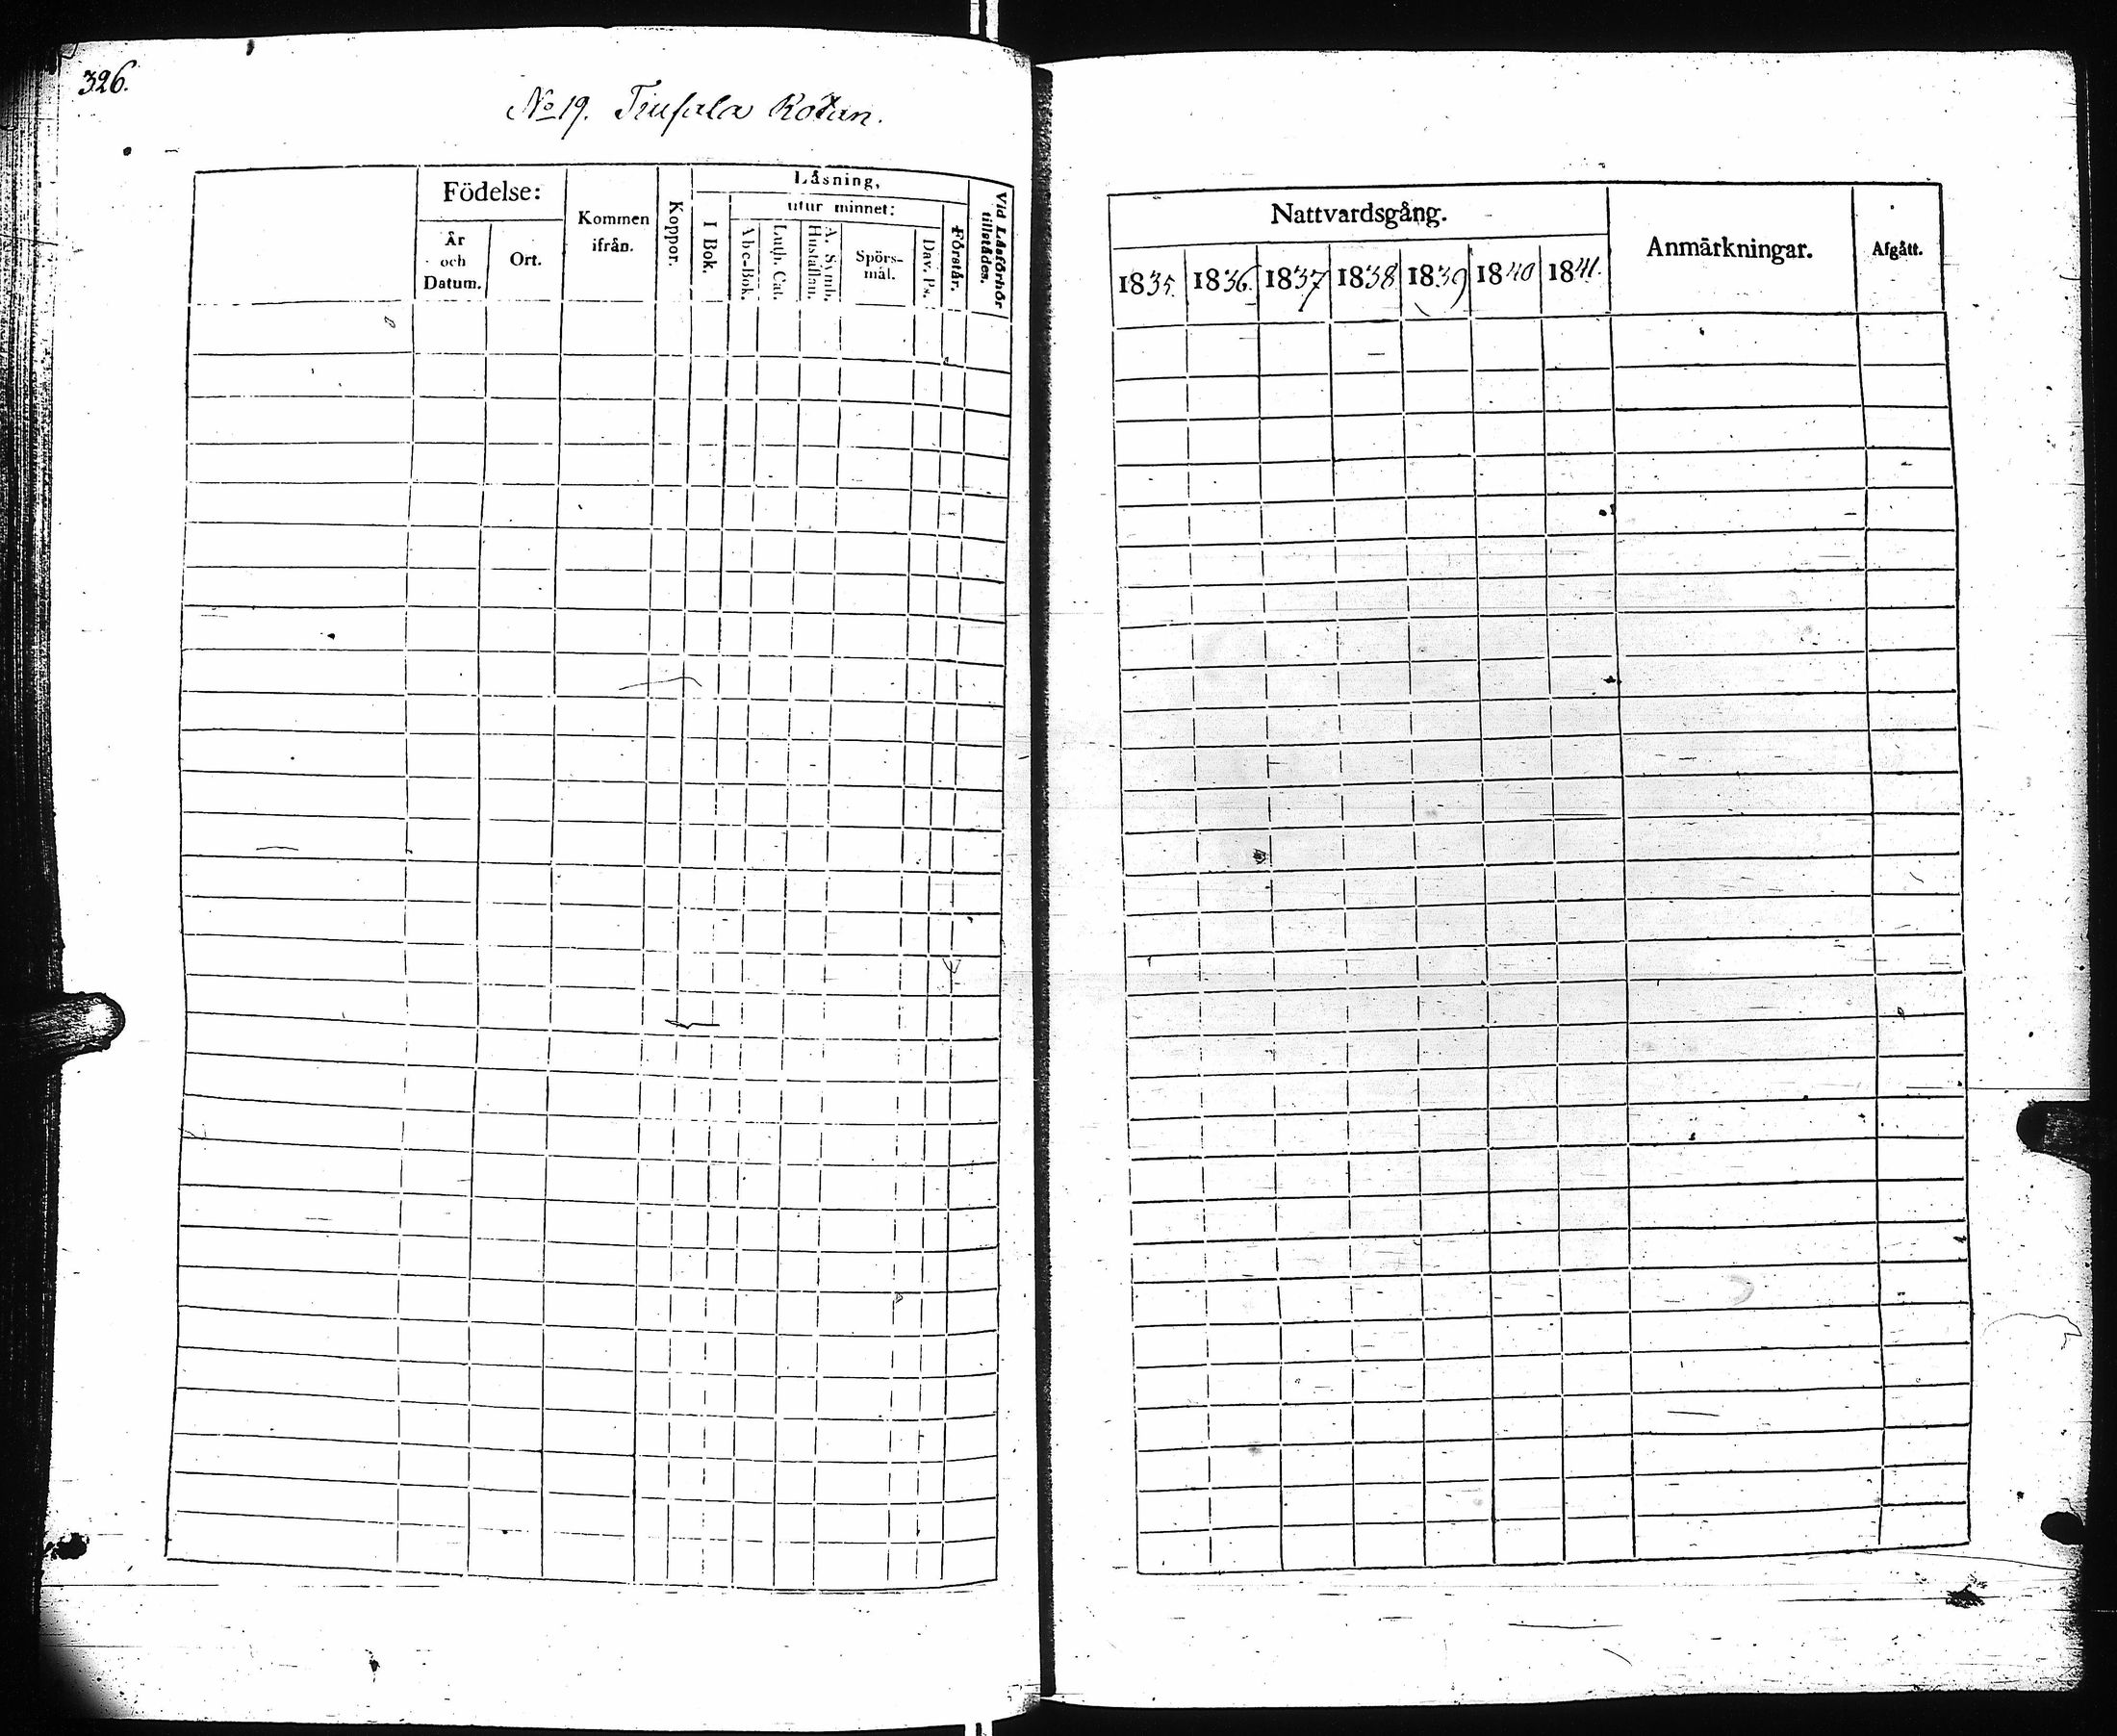 326.
No 19. Trusala Rotan.
Födelse:
År och Datum.
Ort.
Kommen ifrån.
Koppor.
Läsning,
I Bok.
utur minnet:
Abc-Bok.
Luth. Cat.
A. Symb. Hustaflan.
Spörs-mål.
Dav. Ps.
Förstår.
Vid Läsförhör tillstädes.
Nattvardsgång.
1835. 1836. 1837 1838 1839 1840 1841.
Anmärkningar.
Afgått.